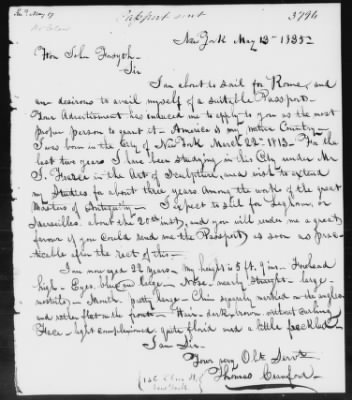 Passport sent
3796
New York May 13th 1835
Hon John Forsyth
Sir
I am about to sail for Rome, and
am desirous to avail myself of a suitable Passport.
Your Advertisement has induced me to apply to you as the most
proper person to grant it - America is my native Country -
I was born in the City of New York March 22nd 1813. For the
last two years I have been studying in this City under Mr
Frazee in the Art of Sculpture, and wish to extend
my Studies for about three years among the works of the great
Masters of Antiquity - I expect to sail for Leghorn, or
Marseilles about the 20th inst, and you will render me a great
favour if you could send me the Passport as soon as prac-
ticable after the rect of this -
I am now aged 22 Years - My height is 5 ft. 9 ins - Forehead
high - Eyes, blue and large - Nose, nearly straight - large
nostrils - Mouth, pretty large - Chin squarely marked on the angles
and rather flat in the front - Hair - dark brown, without curling
Face - light complexioned quite florid and a little freckled -
I am Sir -
Your very Obt Servt
Thomas Crawford
New York